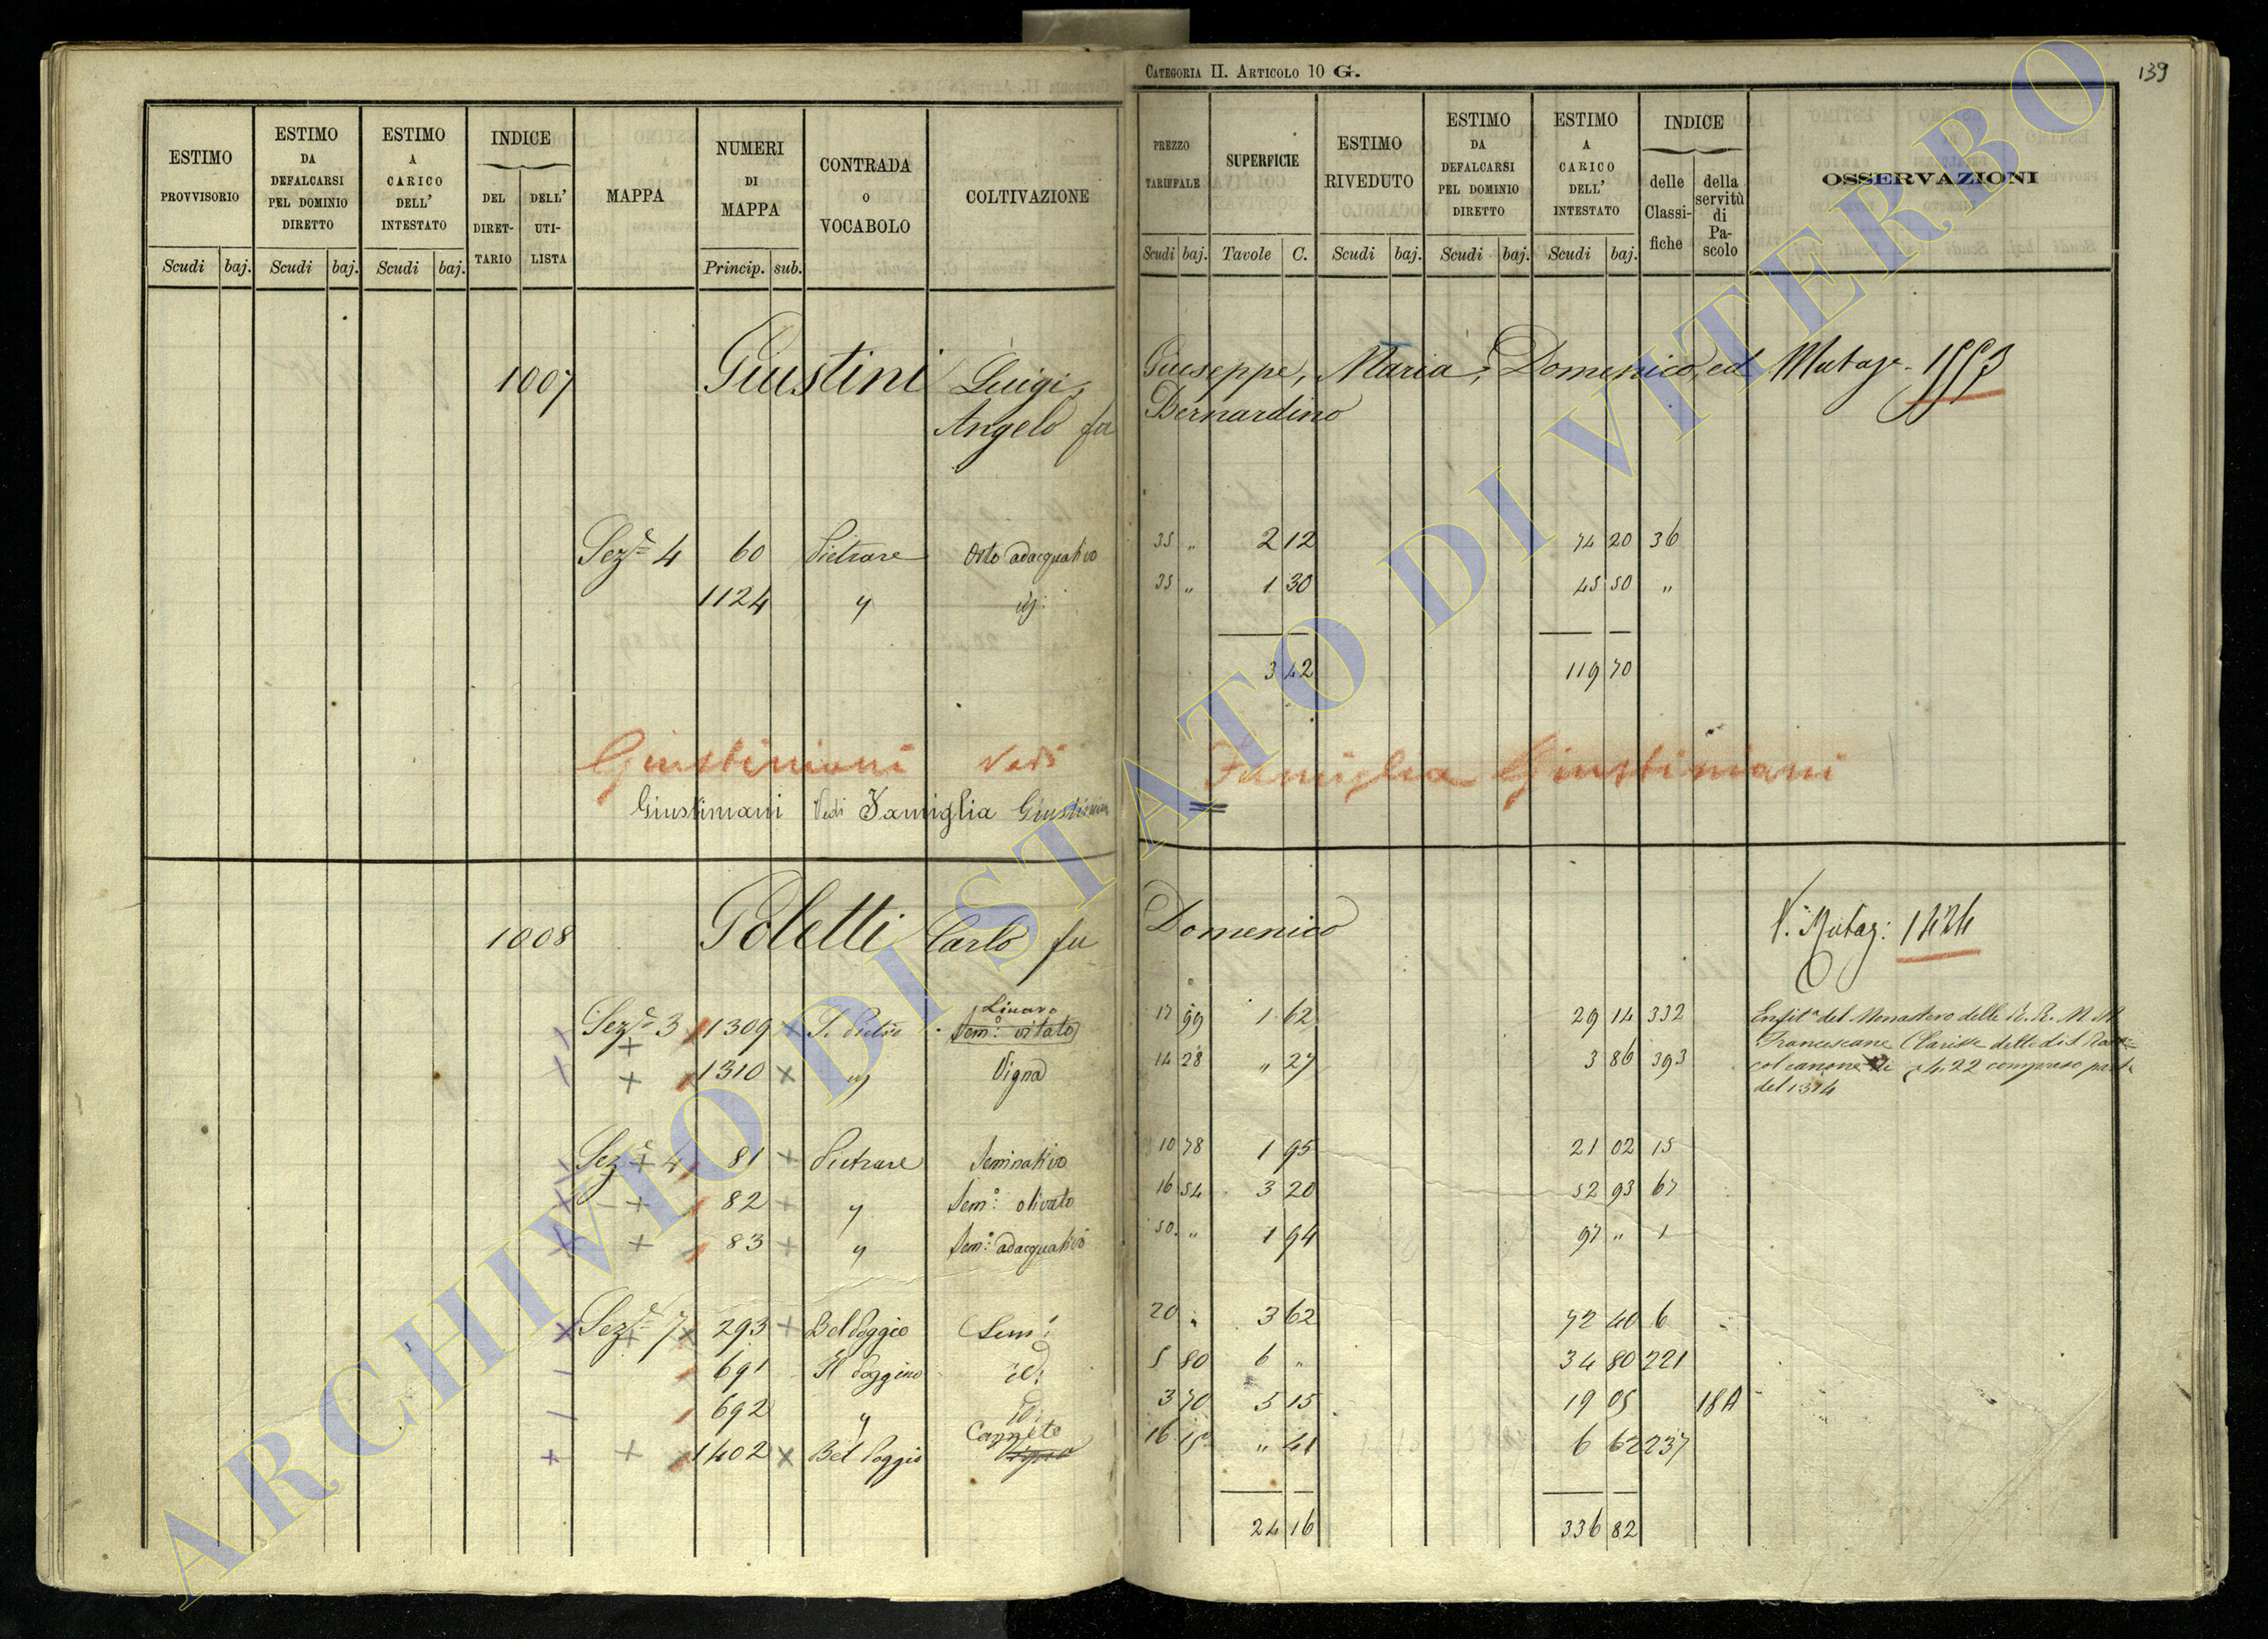 CATEGORIA II. ARTICOLO 10 G.
139
ESTIMO PROVVISORIO
ESTIMO DA DEFALCARSI PEL DOMINIO DIRETTO
ESTIMO A CARICO DELL' INTESTATO
INDICE
DEL DIRET-TARIO
DELL' UTI-LISTA
MAPPA
NUMERI DI MAPPA
CONTRADA o VOCABOLO
COLTIVAZIONE
PREZZO TARIFFALE
SUPERFICIE
ESTIMO RIVEDUTO
ESTIMO DA DEFALCARSI PEL DOMINIO DIRETTO
ESTIMO A CARICO DELL' INTESTATO
INDICE
delle Classi-fiche
della servitù di Pa-scolo
OSSERVAZIONI
Scudi baj. Scudi baj. Scudi baj. Princip. sub. Scudi baj. Tavole C. Scudi baj. Scudi baj. Scudi baj.
1007 Giustini Luigi, Giuseppe, Maria, Domenico, ed Mutaz. 1553
Angelo fu Bernardino
Sez.e 4 60 Pietrare Orto adacquativo 35 " 2 12 74 20 36
1124 " id: 35 " 1 30 45 50 "
3 42 119 70
Giustiniani Vedi Famiglia Giustiniani
Giustiniani Vedi Famiglia Giustiniani
1008 Poletti Carlo fu Domenico V. Mutaz: 1424
Sez.e 3 1309 S. Pietro Sem:o vitato 17 99 1 62 29 14 332 Enfit.a del Monastero delle R. R. M. M.
1310 id Vigna 14 28 " 27 3 86 393 Francescane Clarisse dette di S. Rosa
col canone di 4.22 compreso parte
del 1314
Sez.e 4 81 Pietrare Seminativo 10 78 1 95 21 02 15
82 " Sem:o olivato 16 54 3 20 52 93 67
83 " Sem:o adacquativo 50 " 1 94 97 " 1
Sez.e 7 293 Bel Poggio Sem: 20 " 3 62 72 40 6
691 Il Poggino id: 5 80 6 " 34 80 221
692 " id: 3 70 5 15 19 05 18A
Canneto
1402 Bel Poggio Vigna 16 15 " 41 6 62 237
24 16 336 82
ARCHIVIO DI STATO DI VITERBO